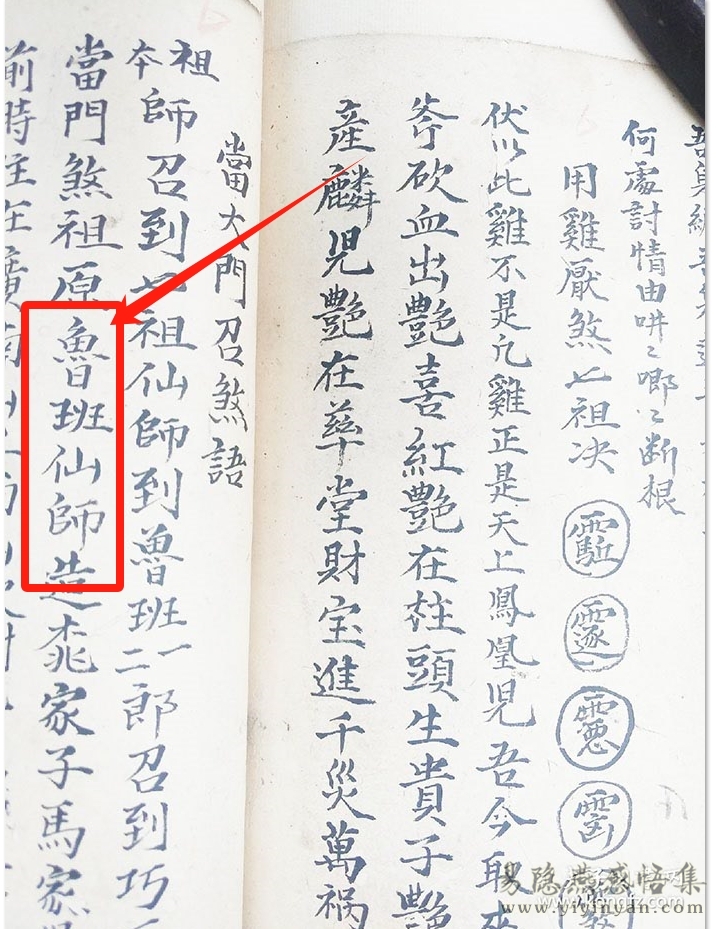 何處討情由哄〻唧〻断根
用雞厭煞七祖决
伏以此雞不是凢雞正是天上鳳凰児吾今取來
斧砍血出艷喜紅艷在柱頭生貴子艷
産麟児艷在華堂財宝進千災萬祸
當大門召煞語
祖本師召到七祖仙師到魯班一二郎召到巧
當門煞祖原魯班仙師造 家子馬家
前時住在廣南
易隐燕感悟集
www.yiyinyan.com